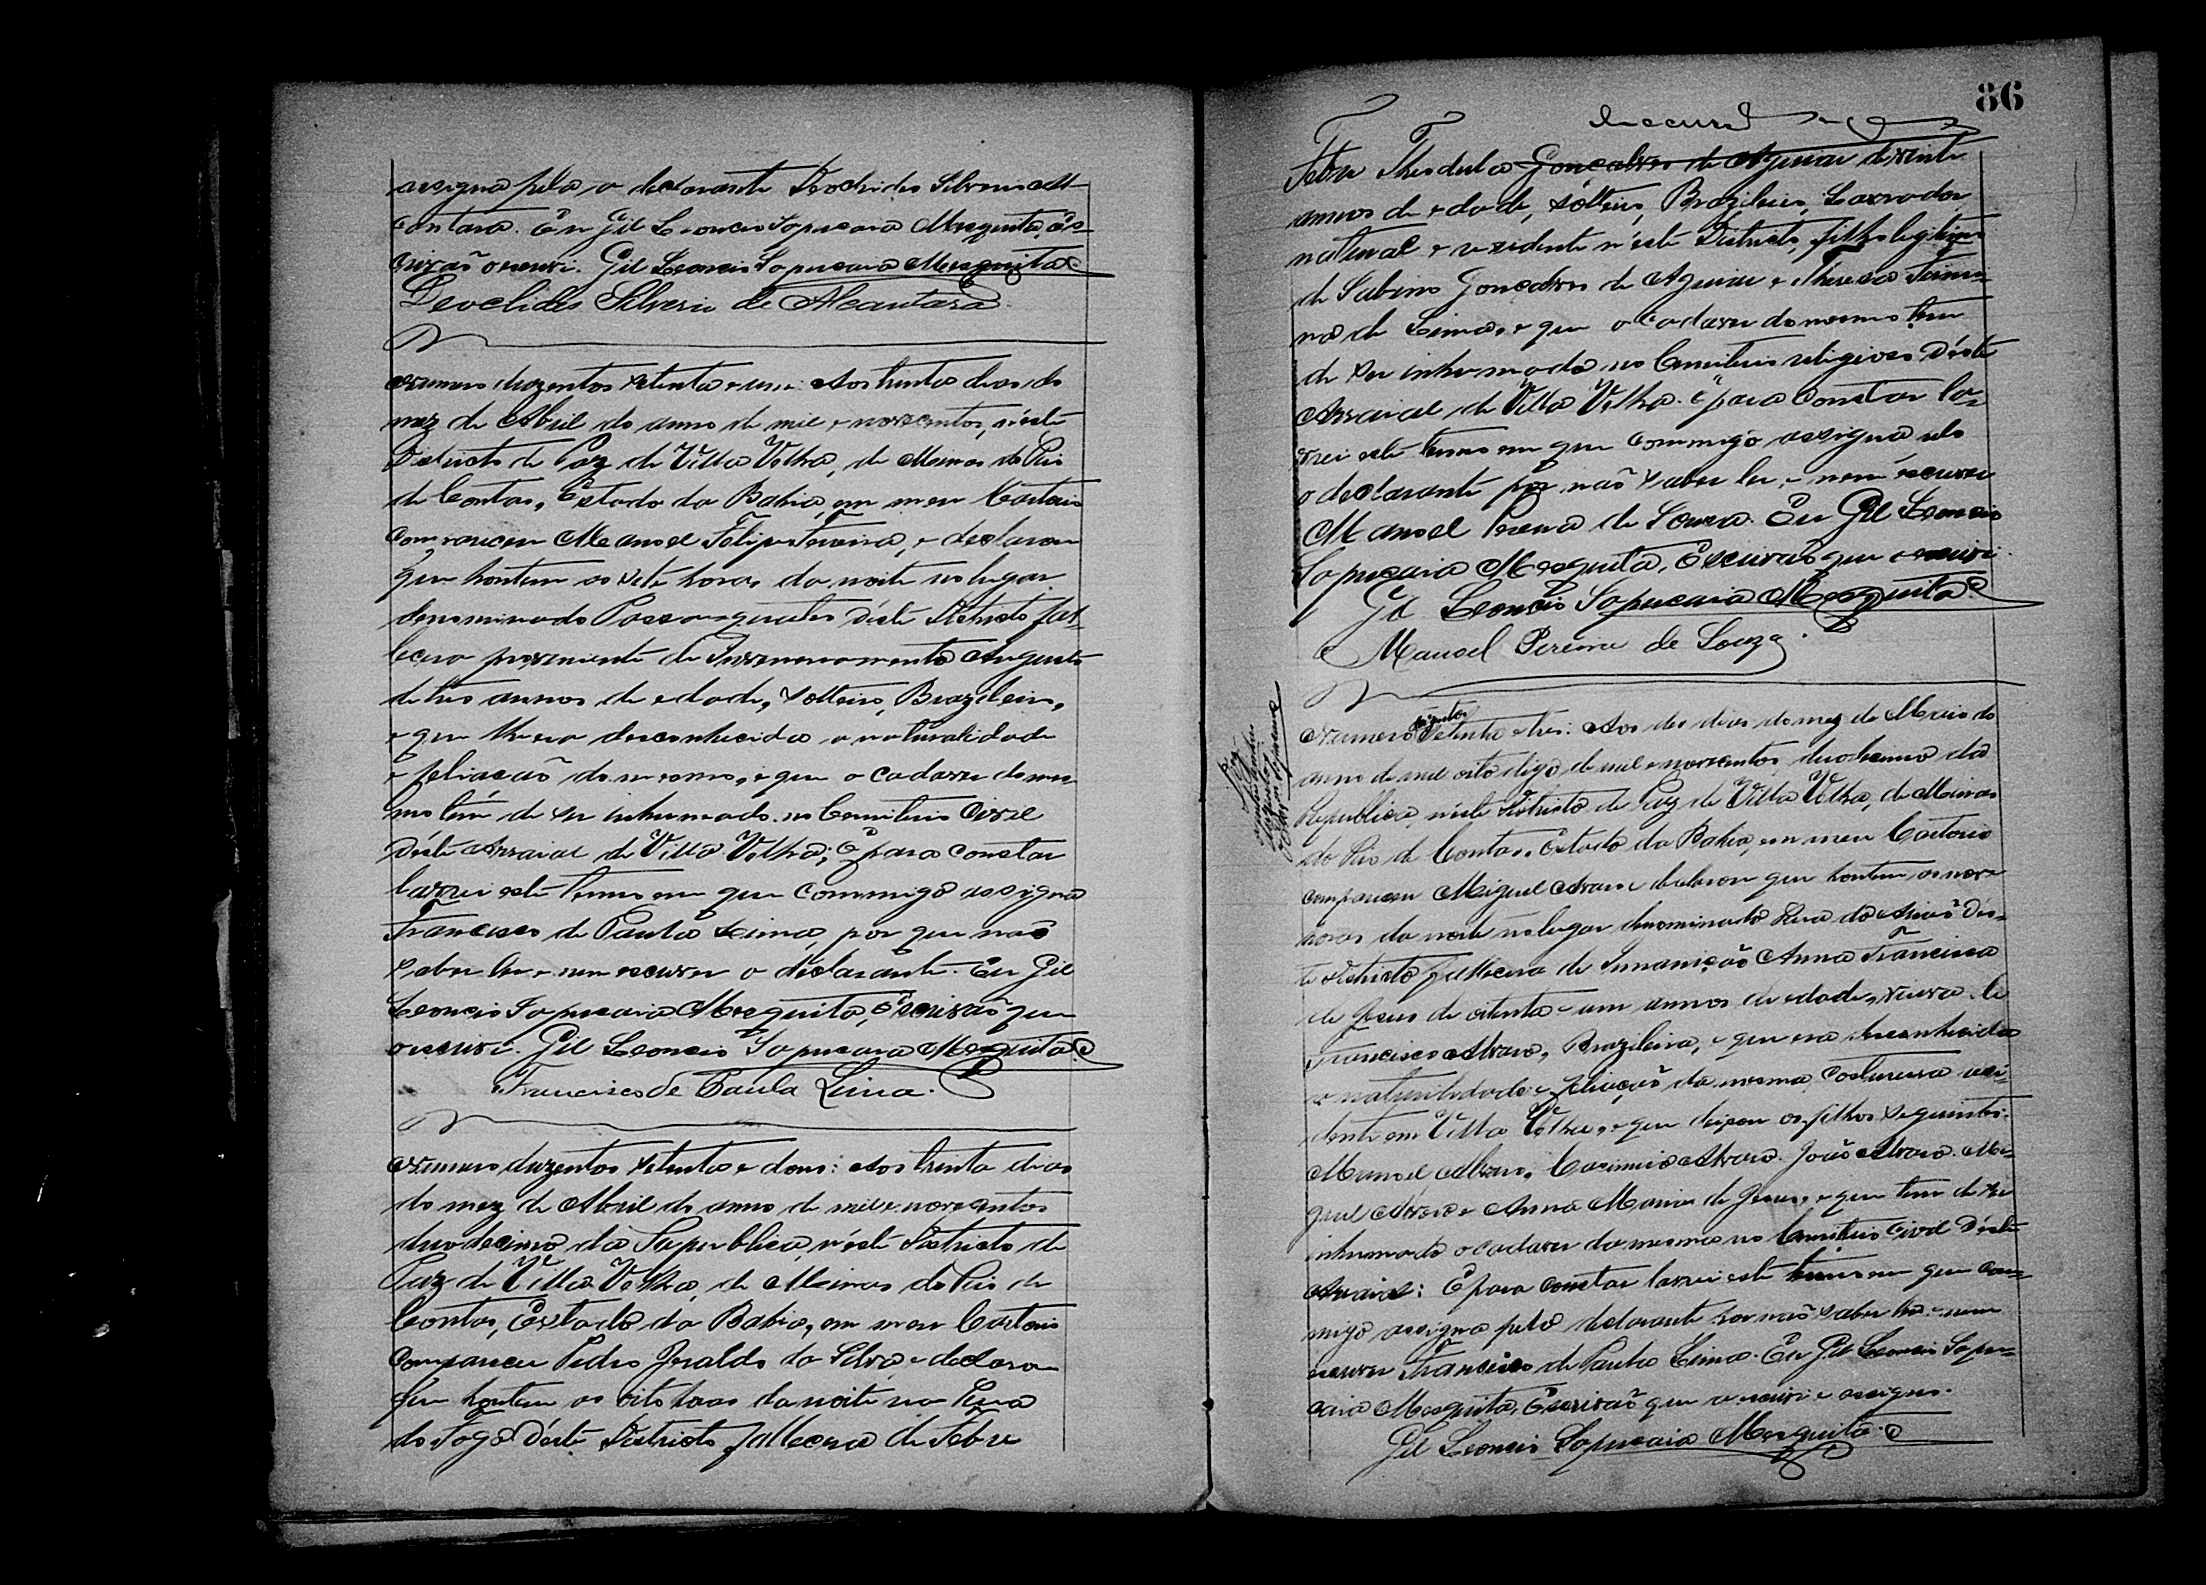 assigna pela o declarante Deoclides Silverio Al-
cantara. Eu Gil Leoncio Sapucaia Mesquita, Es-
crivão o escrevi. Gil Leoncio Sapucaia Mesquita
Deoclides Silverio de Alcantara.
Numero duzentos setenta e um: Aos trinta dias do
mez de Abril do anno de mil e novecentos, n'este
Districto de Paz de Villa Velha, de Minas do Rio
de Contas, Estado da Bahia, em meu Cartorio
compareceu Manoel Felipe Ferreira, e declarou
que hontem as sete horas da noite no lugar
denominado d'este Districto fal-
lecera proveniente de Augusto
de tres annos de edade, solteiro, Brazileiro,
e que thera desconhecida a naturalidade
e filiação do mesmo, e que o cadaver do mes-
mo tem de ser inhumado no Cemiterio Civil
d'este Arraial de Villa Velha; E para constar
lavrei este termo em que commigo assigna
Francisco de Paula Lima, por que não
saber ler e nem escrever o declarante. Eu Gil
Leoncio Sapucaia Mesquita, Escrivão que
o escrevi. Gil Leoncio Sapucaia Mesquita
Francisco de Paula Lima.
Numero duzentos setenta e dous: Aos trinta dias
do mez de Abril do anno de mil e novecentos
duodecimo da Republica, n'este Districto de
Paz de Villa Velha, de Minas do Rio de
Contas, Estado da Bahia, em meu Cartorio
compareceu Pedro Geraldo da Silva e declarou
que hontem as oito horas da noite na Rua
do Fogo d'este Districto fallecera de Febre
86
Febre Theodulo Gonçalves de Aguiar de vinte
annos de edade, solteiro, Brazileiro, Lavrador
natural e residente n'este Districto, filho legitimo
de Sabino Gonçalves de Aguiar e Thereza
de Lima, e que o cadaver do mesmo tem
de ser inhumado no Cemiterio religioso d'este
Arraial de Villa Velha. E para constar la-
vrei este termo em que commigo assigna pelo
o declarante por não saber ler e nem escrever
Manoel Pereira de Souza. Eu Gil Leoncio
Sapucaia Mesquita, Escrivão que o escrevi.
Gil Leoncio Sapucaia Mesquita
Manoel Pereira de Souza.
Numero duzentos setenta e tres: Aos dez dias do mez de Maio do
anno de mil oito digo de mil e novecentos, duodecimo da
Republica, n'este Districto de Paz de Villa Velha, de Minas
do Rio de Contas, Estado da Bahia, em meu Cartorio
compareceu Miguel Alvaro e declarou que hontem, as nove
horas da noite no lugar denominado Rua do d'es-
te Districto fallecera de Inanição Anna Francisca
de Jesus de oitenta e um annos de edade, viuva de
Francisco Alvaro, Brazileira, e que era desconhecida
a naturalidade e filiação da mesma, costureira resi-
dente em Villa Velha, e que deixou os filhos seguintes:
Manoel Alvaro, Casimiro Alvaro, João Alvaro, Mi-
guel Alvaro e Anna Maria de Jesus, e que tem de ser
inhumado o cadaver da mesma no Cemiterio Civil d'este
Arraial: E para constar lavrei este termo em que com-
migo assigna pelo declarante por não saber ler e nem
escrever Francisco de Paula Lima. Eu Gil Leoncio Sapu-
caia Mesquita, Escrivão que o escrevi e assigno.
Gil Leoncio Sapucaia Mesquita